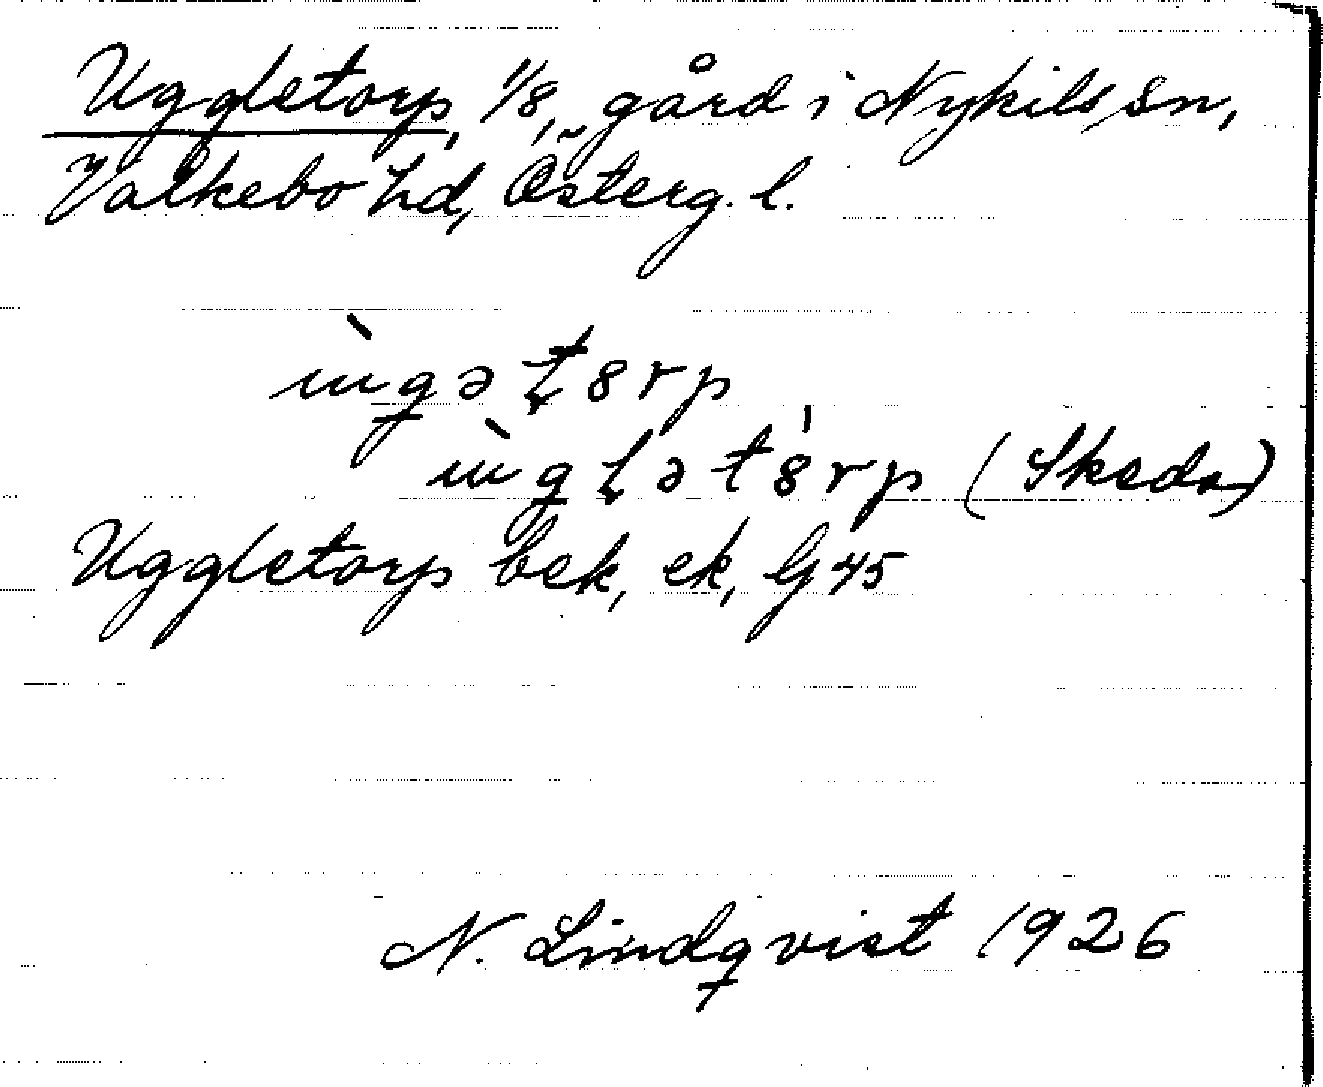 Uggletorp, 1/8, gård i Nykils sn,
Valkebo hd, Österg. l.
ùgətȣrp
ùglətȣ́rp (Skeda)
Uggletorp bek, ek, Gj 45
N. Lindqvist 1926